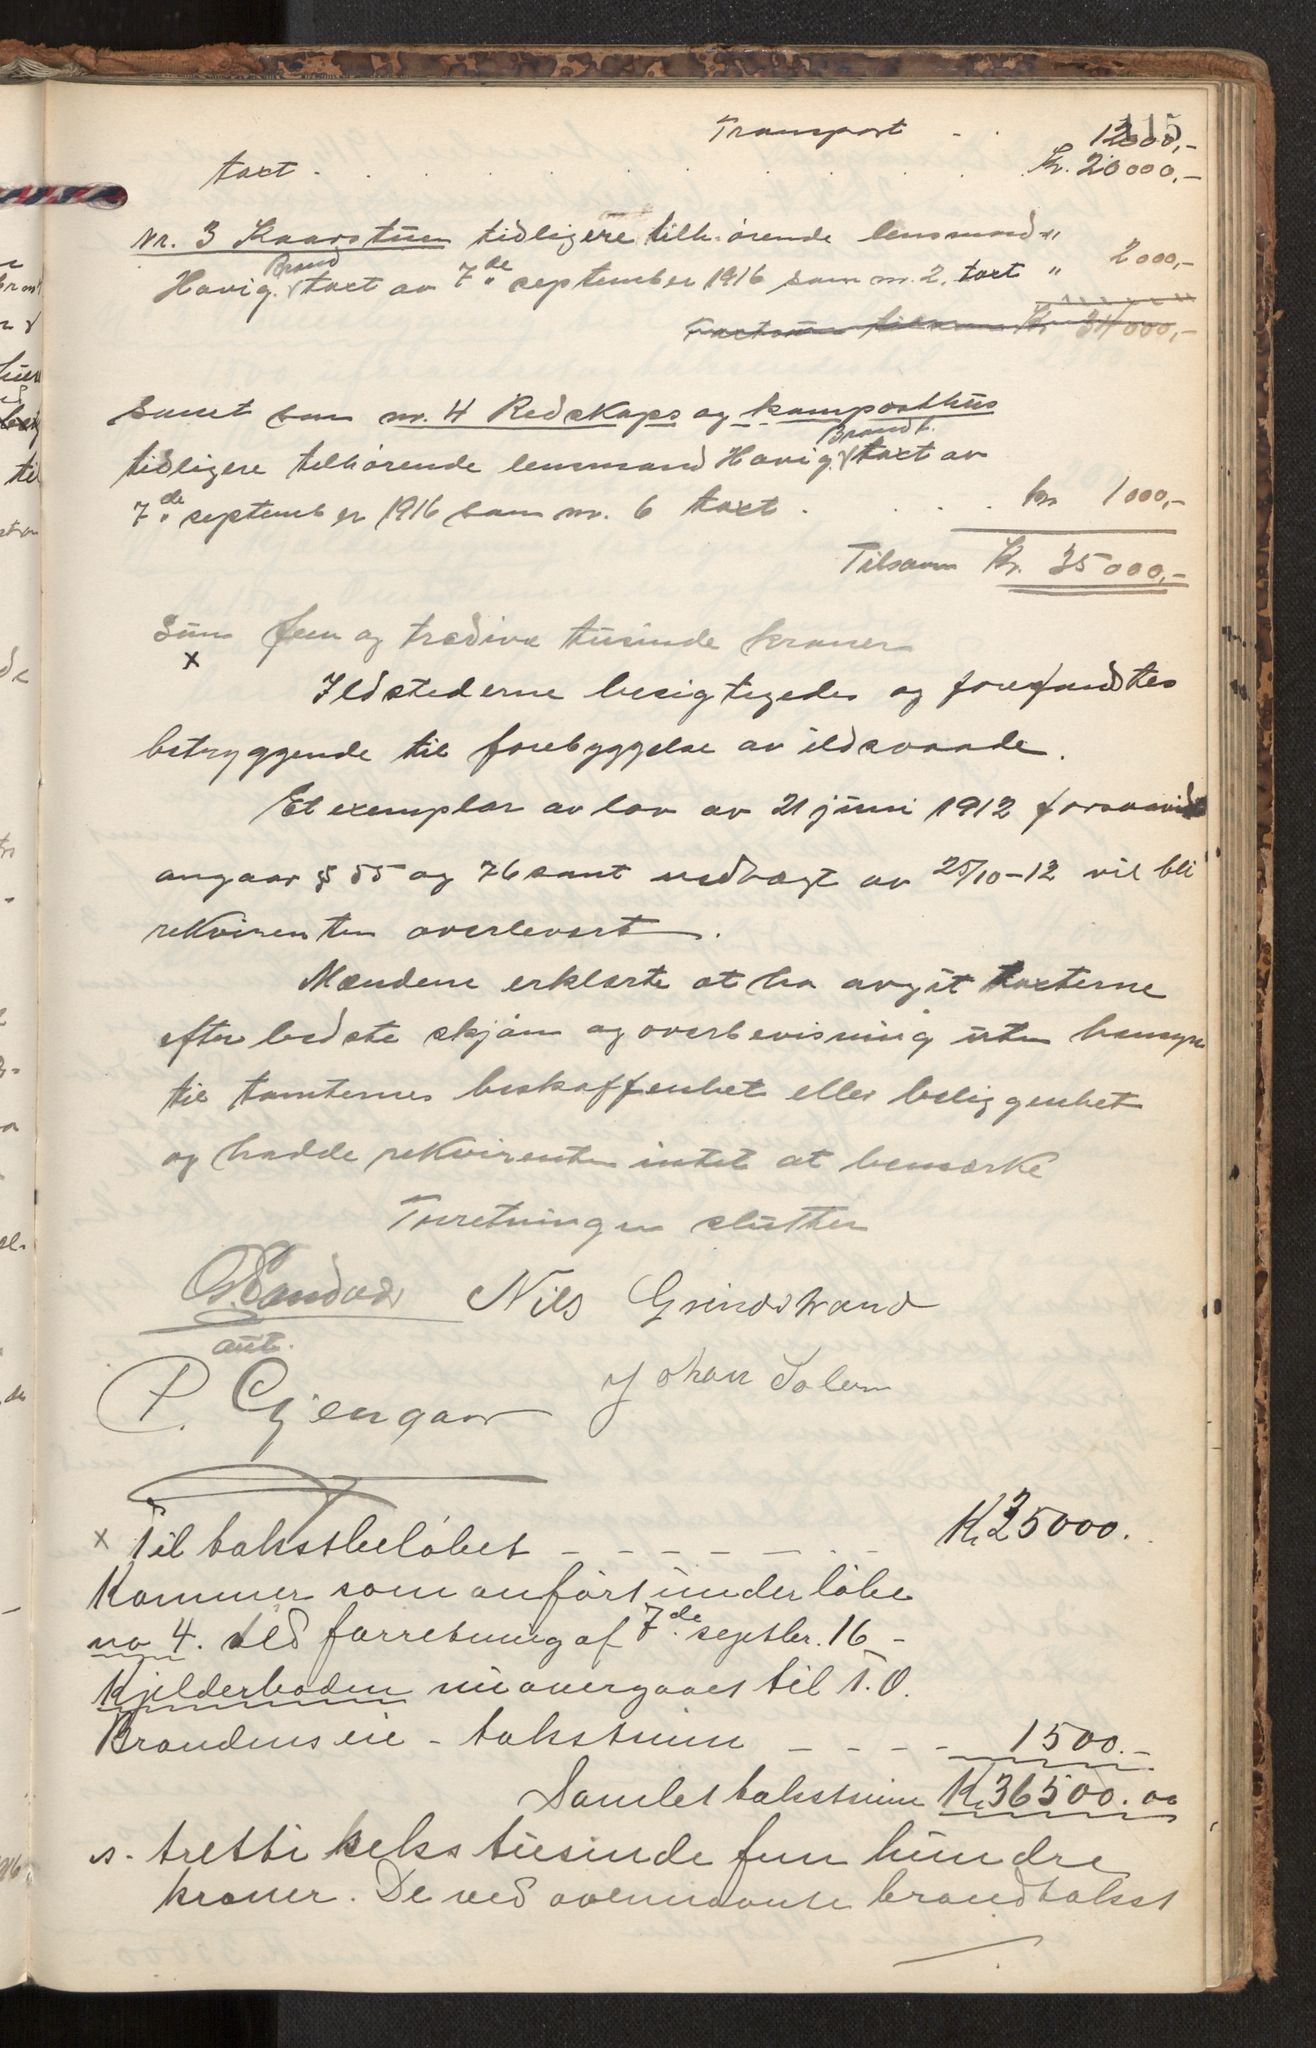 115
Transport - . 12000,-
taxt . . . . . . . . . . Kr. 20000,-
Nr. 3 Kaarstuen tidligere tilhørende lensmand "
Havig. Brandtaxt av 7de september 1916 som nr. 2. taxt " 2000,-
Taxtsum tilsam Kr 34000,-
Samt som nr. 4 Redskaps og komposthus
tidligere tilhørende lensmand Havig. Brandt. taxt av
7de september 1916 som nr. 6 taxt . . . . kr 1000,-
Tilsam Kr. 35000,-
Sum fem og trediva tusinde kroner
x
Ildstederne besigtegedes og forefandtes
betryggende til forebyggelse av ildsvaade.
Et exemplar av lov av 21 juni 1912 forsaavidt
angaar § 55 og 76 samt utdragt av 25/10-12 vil bli
rekvirenten overlevert.
Mændene erklærte at ha avgit taxterne
efter bedste skjøn og overbevisning uten hensyn
til tomternes beskaffenhet eller beliggenhet
og hadde rekvirenten intet at bemærke
Forretningen sluttes
Nils Grindstrand
aut.
Johan Solem
P. Gjengaar
x Til takstbeløbet - - - - - - - Kr 35000.
Kommer som anført under løbe
no 4. ved forretning af 7de septbr. 16 -
Kjelderboden nu overgaaet til T. O.
Brandens eie - takstsum - - - - 1500.-
Samlet takstsum Kr 36500.00
s. tretti seks tusinde fem hundre
kroner. De ved ovennævnte brandtakst